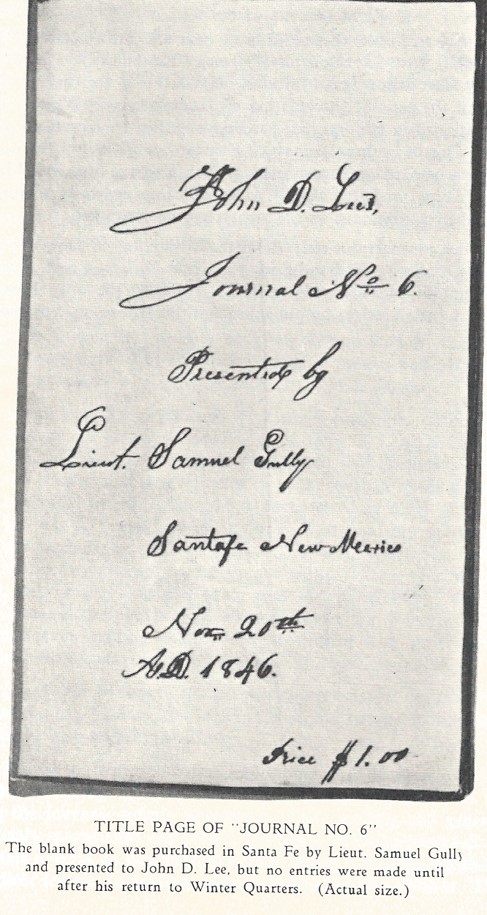 John D. Lee's,
Journal No 6.
Presented by
Lieut. Samuel Gully
Santafe New Mexico
Nov. 20th
A.D. 1846.
Price $1.00
TITLE PAGE OF "JOURNAL NO. 6"
The blank book was purchased in Santa Fe by Lieut. Samuel Gully
and presented to John D. Lee, but no entries were made until
after his return to Winter Quarters. (Actual size.)